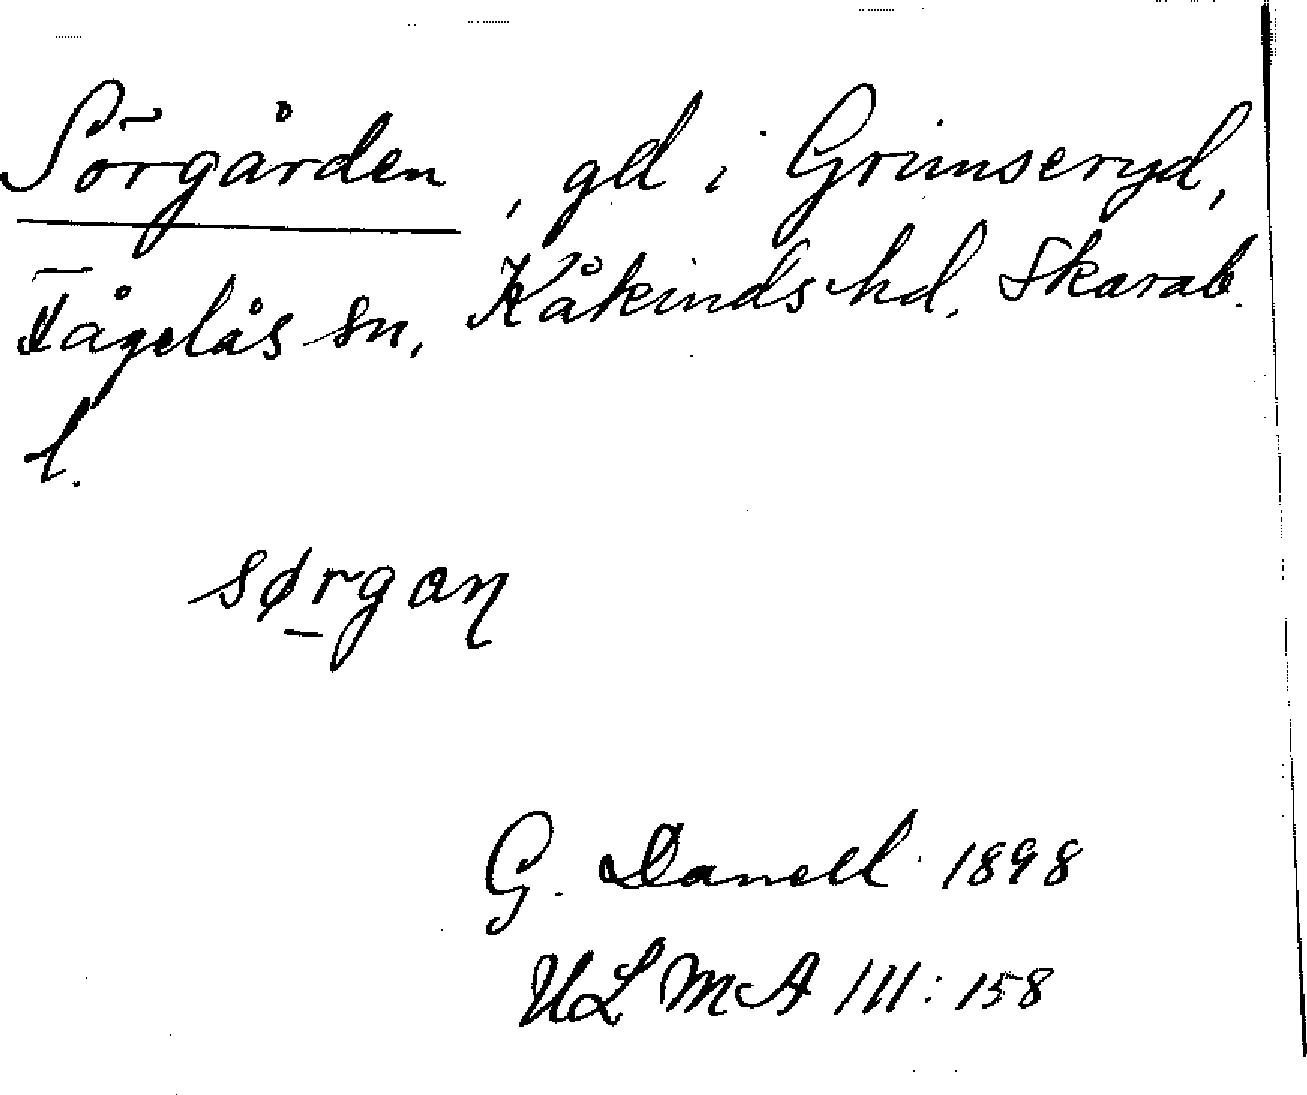 Sörgården, gd i Grimseryd,
Fågelås sn, Kåkinds hd. Skarab.
l.
sørgan
G. Danell 1898
ULMA 111:158